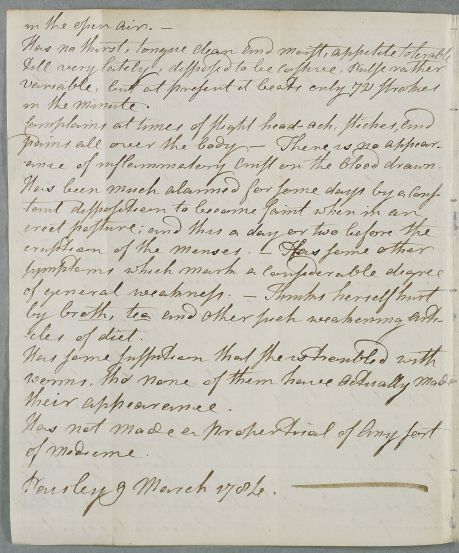 in the open air. —
Has no thirst, tongue clean and moist, appetite tolerable
till very lately, disposed to be costive, Pulse rather
variable, but at present it beats only 72 strokes
in the minute.
Complains at times of slight head-ach, stiches, and
pains all over the body — There is no appear-
ance of inflammatory crust on the blood drawn.
Has been much alarmed for some days by a cons-
tant disposition to become faint when in an
erect posture; and this a day or two before the
eruption of the menses. — Has some other
symptoms which mark a considerable degree
of general weakness. — Thinks herself hurt
by broth, tea and other such weakening arti-
cles of diet.
Has some suspition that she is troubled with
worms, tho' none of them have actually made
their appearance.
Has not made a proper trial of any sort
of medicine.
Paisley 9 March 1784.